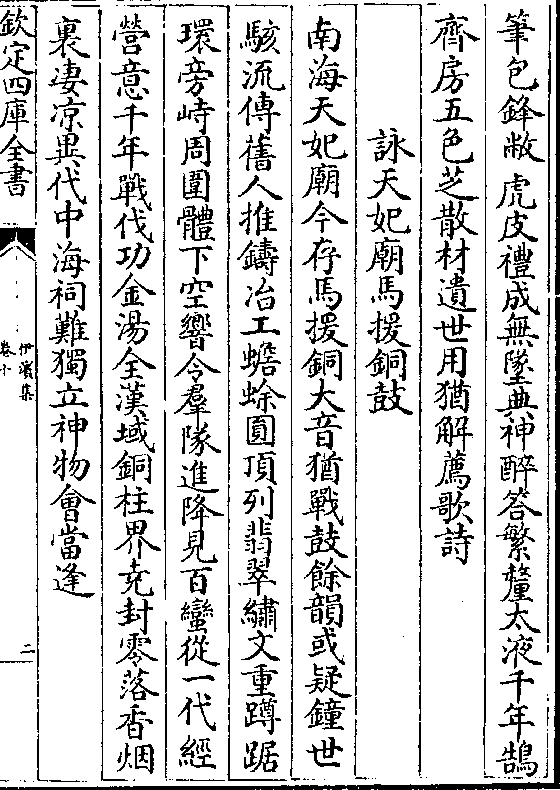 筆包鋒敝虎皮禮成無墜典神醉答繁釐太液千年鵠
齊房五色芝散材遺世用猶解薦歌詩
詠天妃廟馬援銅鼓
南海天妃廟今存馬援銅大音猶戰鼓餘韻或疑鐘世
駭流傳舊人推鑄冶工蟾蜍圓頂列翡翠繡文重蹲踞
環旁峙周圍體下空響令羣隊進降見百蠻從一代經
營意千年戰伐功金湯全漢域銅柱界堯封零落香烟
裏凄凉異代中海祠難獨立神物會當逢
欽定四庫全書
伊濱集
卷十
二